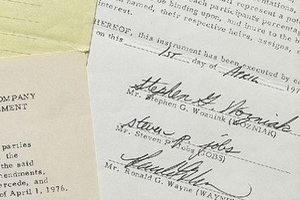 represent a
each participants percentage
be binding upon, and inure to the b
named, their respective heirs, assigns,
interest.
HEREOF, this instrument has been executed by e
on this 1ST day of APRIL 197
Stephen G. Wozniak
Mr. Stephen G. Wozniak (WOZNIAK)
steven p. jobs
Mr. Steven P. Jobs (JOBS)
Mr. Ronald G. Wayne (WAYNE
COMPANY
EMENT
parties
the
the said
mendments,
ercede, and
of April 1, 1976.